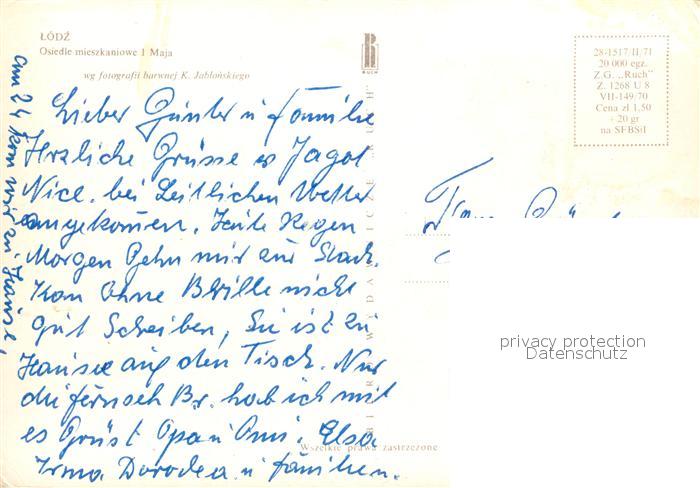 ŁÓDŹ
Osiedle mieszkaniowe 1 Maja
wg fotografii barwnej K. Jabłońskiego
RUCH
28-1517/II/71
20 000 egz.
Z.G. „Ruch"
Z. 1268 U 8
VII-149/70
Cena zł 1,50
+ 20 gr
na SFBSiI
Lieber Günter u Familie
Herzliche Grüsse
Nice. bei Wetter
angekomen. Heite Regen
Morgen Gehn mir zur Stadt.
Kan Ohne Brille nicht
gut Schreiben, Sie ist zu
Hause auf den Tisch. Nur
die fernseh Br. hab ich mit
es Grüst Opa u Omi. Elsa
Irma Dorodea u familien.
am 24 kom wir zu Hause,
Wszelkie prawa zastrzeżone
privacy protection
Datenschutz